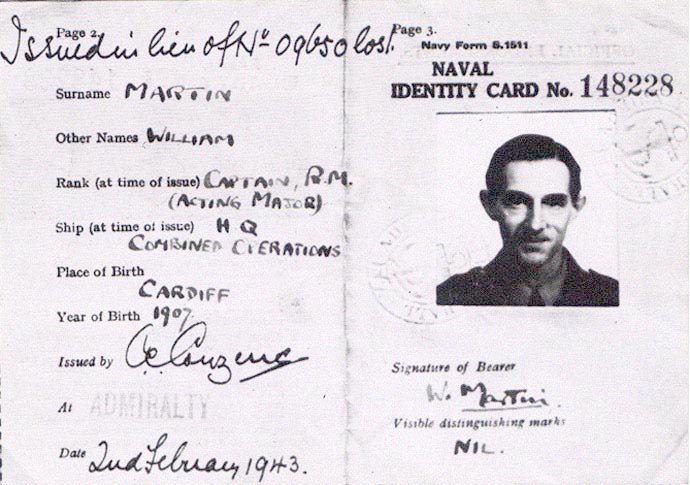 Page 2.
Issued in lieu of No 09650 lost.
Surname MARTIN
Other Names WILLIAM
Rank (at time of issue) CAPTAIN, R.M.
(ACTING MAJOR)
Ship (at time of issue) H Q
COMBINED OPERATIONS
Place of Birth
CARDIFF
Year of Birth 1907.
Issued by
At ADMIRALTY
Date 2nd February 1943.
Page 3.
Navy Form S.1511
NAVAL
IDENTITY CARD No. 148228
Signature of Bearer
W. Martin.
Visible distinguishing marks
NIL.